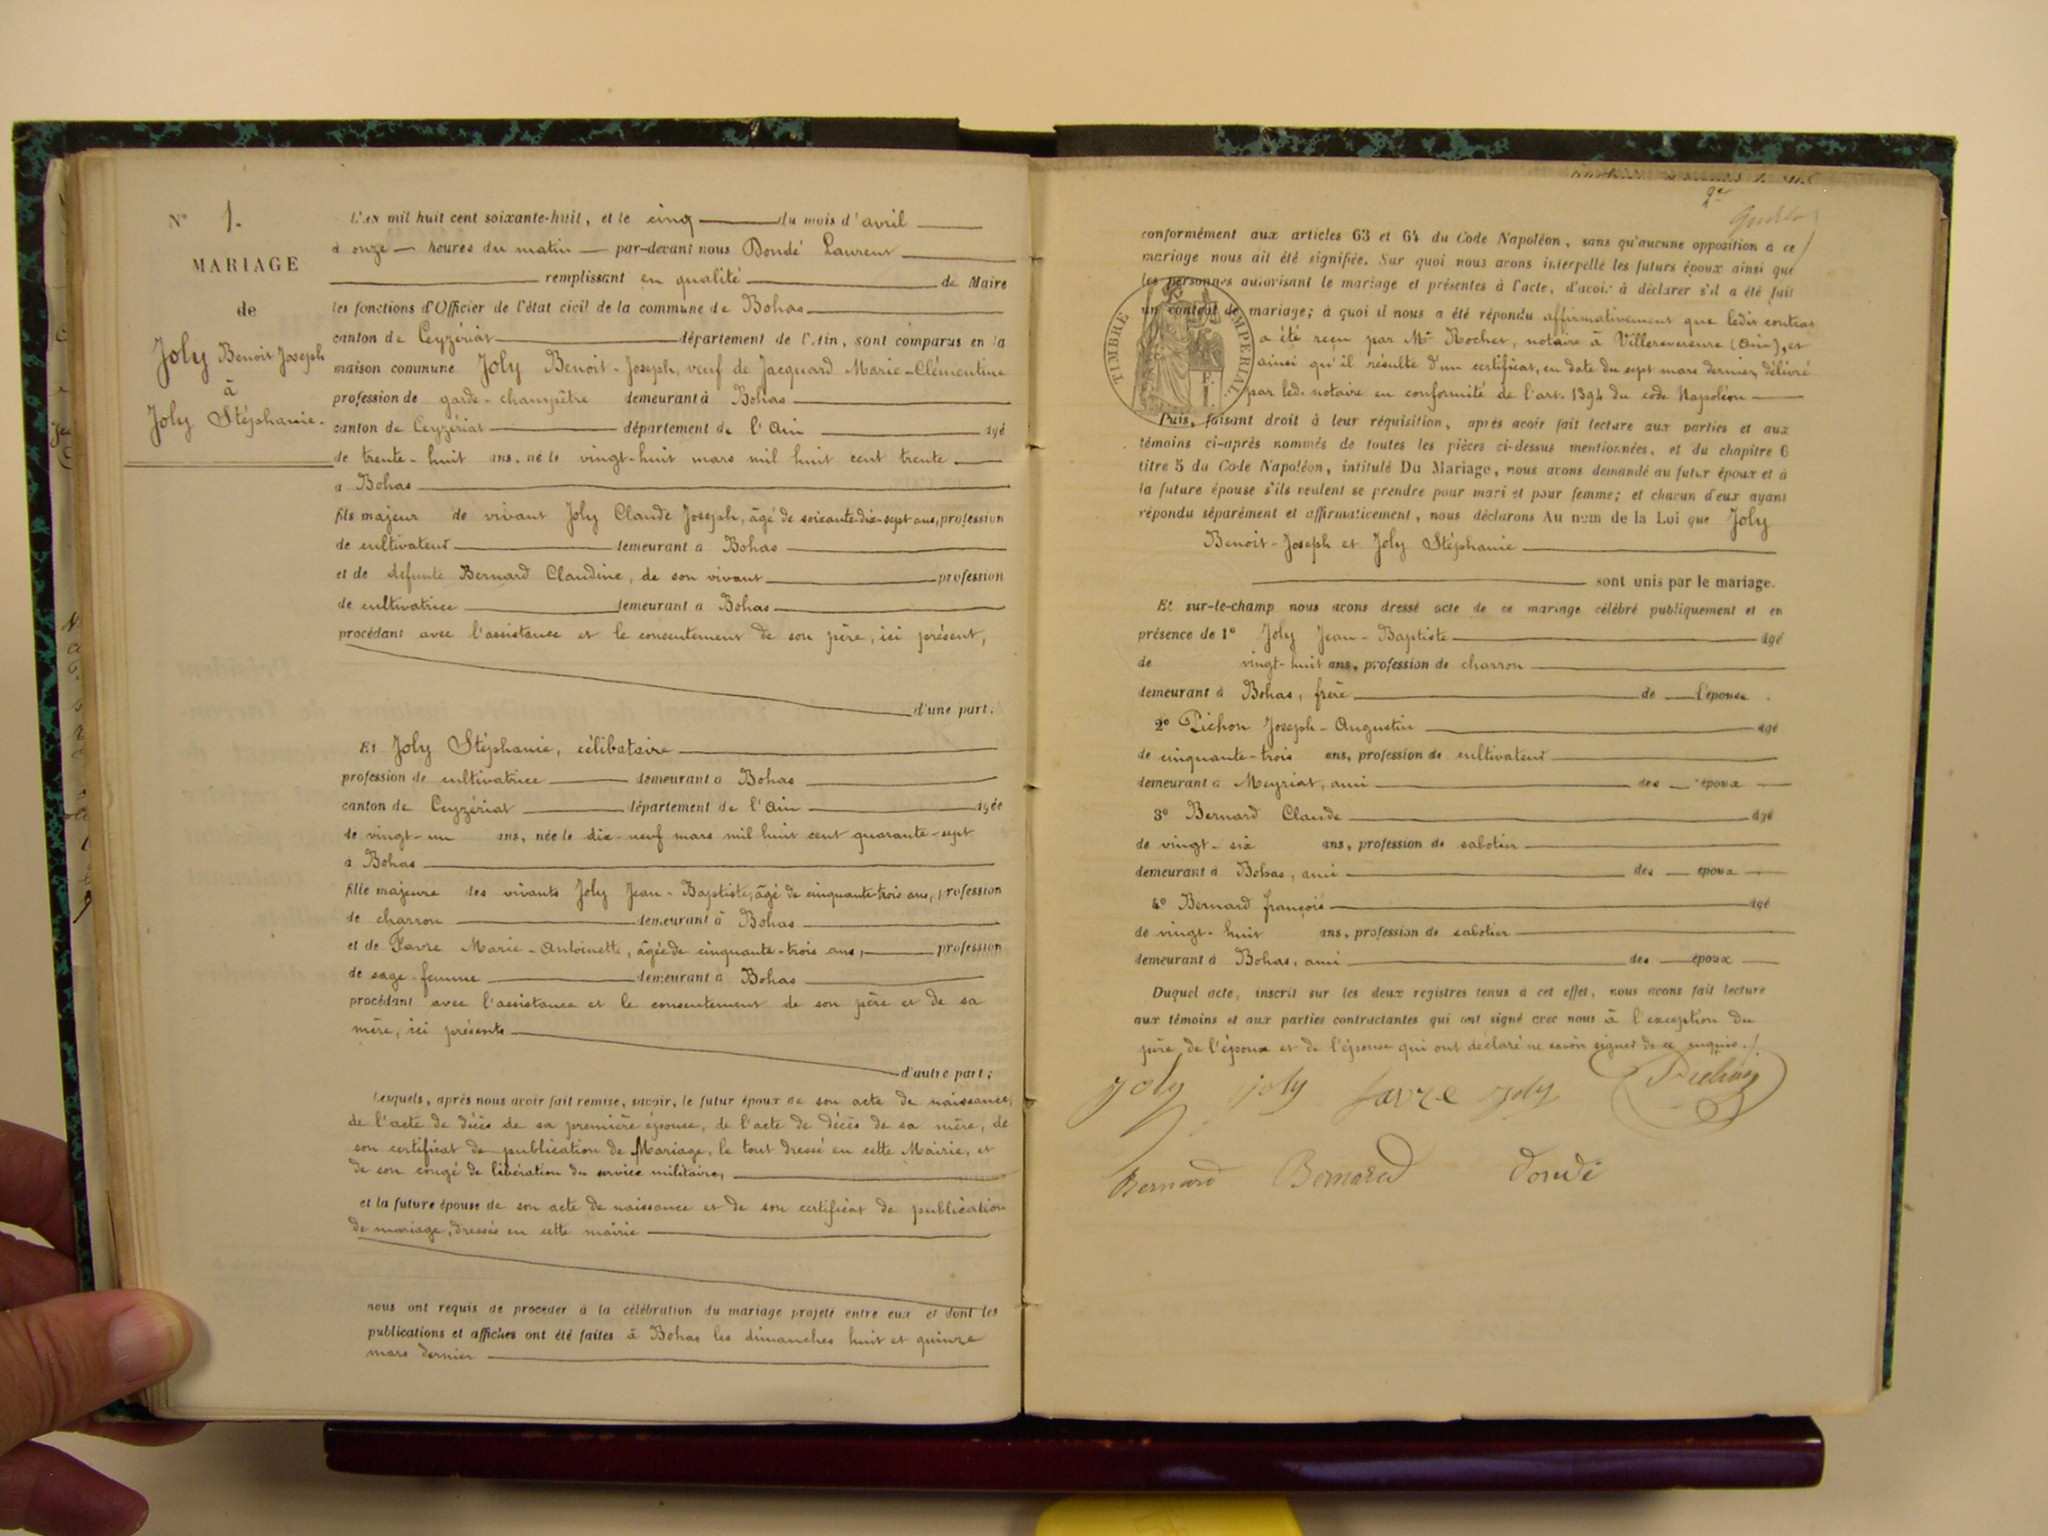 N° 1.
MARIAGE
de
Joly Benoit Joseph
à
Joly Stéphanie.
L'AN mil huit cent soixante-huit, et le cinq du mois d'avril
à onze heures du matin par-devant nous Dondé Laurent
remplissant en qualité de Maire
les fonctions d'Officier de l'état civil de la commune de Bohas
canton de Ceyzériat département de l'Ain, sont comparus en la
maison commune Joly Benoit-Joseph, veuf de Jacquard Marie-Clémentine
profession de garde-champêtre demeurant à Bohas
canton de Ceyzériat département de l'Ain âgé
de trente-huit ans, né le vingt-huit mars mil huit cent trente
à Bohas
fils majeur de vivant Joly Claude Joseph, âgé de soixante-dix-sept ans, profession
de cultivateur demeurant à Bohas
et de défunte Bernard Claudine, de son vivant profession
de cultivatrice demeurant à Bohas
procédant avec l'assistance et le consentement de son père, ici présent,
d'une part;
Et Joly Stéphanie, célibataire
profession de cultivatrice demeurant à Bohas
canton de Ceyzériat département de l'Ain âgée
de vingt-un ans, née le dix-neuf mars mil huit cent quarante-sept
à Bohas
fille majeure des vivants Joly Jean-Baptiste, âgé de cinquante-trois ans, profession
de charron demeurant à Bohas
et de Favre Marie-Antoinette, âgée de cinquante-trois ans, profession
de sage-femme demeurant à Bohas
procédant avec l'assistance et le consentement de son père et de sa
mère, ici présents
d'autre part;
Lesquels, après nous avoir fait remise, savoir, le futur époux de son acte de naissance,
de l'acte de décès de sa première épouse, de l'acte de décès de sa mère, de
son certificat de publication de Mariage, le tout dressé en cette Mairie, et
de son congé de libération du service militaire,
et la future épouse de son acte de naissance et de son certificat de publication
de mariage, dressés en cette mairie
nous ont requis de procéder à la célébration du mariage projeté entre eux et dont les
publications et affiches ont été faites à Bohas les dimanches huit et quinze
mars dernier
conformément aux articles 63 et 64 du Code Napoléon, sans qu'aucune opposition à ce
mariage nous ait été signifiée. Sur quoi nous avons interpellé les futurs époux ainsi que
les personnes autorisant le mariage et présentes à l'acte, d'avoir à déclarer s'il a été fait
un contrat de mariage; à quoi il nous a été répondu affirmativement que ledit contrat
a été reçu par Me Rochet, notaire à Villereversure (Ain), et
ainsi qu'il résulte d'un certificat, en date du sept mars dernier, délivré
par led. notaire en conformité de l'art. 1394 du code Napoléon
TIMBRE IMPERIAL
Puis, faisant droit à leur réquisition, après avoir fait lecture aux parties et aux
témoins ci-après nommés de toutes les pièces ci-dessus mentionnées, et du chapitre 6
titre 5 du Code Napoléon, intitulé Du Mariage, nous avons demandé au futur époux et à
la future épouse s'ils veulent se prendre pour mari et pour femme; et chacun d'eux ayant
répondu séparément et affirmativement, nous déclarons Au nom de la Loi que Joly
Benoit-Joseph et Joly Stéphanie
sont unis par le mariage.
Et sur-le-champ nous avons dressé acte de ce mariage célébré publiquement et en
présence de 1° Joly Jean-Baptiste âgé
de vingt-huit ans, profession de charron
demeurant à Bohas, frère de l'épouse
2° Pichon Joseph-Augustin âgé
de cinquante-trois ans, profession de cultivateur
demeurant à Meyriat, ami des époux
3° Bernard Claude âgé
de vingt-six ans, profession de sabotier
demeurant à Bohas, ami des époux
4° Bernard françois âgé
de vingt-huit ans, profession de sabotier
demeurant à Bohas, ami des époux
Duquel acte, inscrit sur les deux registres tenus à cet effet, nous avons fait lecture
aux témoins et aux parties contractantes qui ont signé avec nous à l'exception du
père de l'époux et de l'épouse qui ont déclaré ne savoir signer de ce enquis./.
joly joly favre joly Pichon
Bernard Bernard Dondé